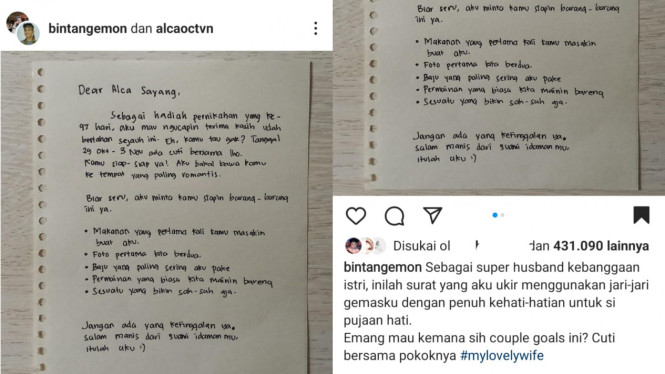 bintangemon dan alcaoctvn
Dear Alca Sayang,
Sebagai hadiah pernikahan yang ke-
97 hari, aku mau ngucapin terima kasih udah
bertahan sejauh ini. Eh, kamu tau gak? Tanggal
29 Okt - 3 Nov ada cuti bersama lho.
Kamu siap-siap ya! Aku bakal bawa kamu
ke tempat yang paling romantis.
Biar seru, aku minta kamu siapin barang-barang
ini ya.
• Makanan yang pertama kali kamu masakin
buat aku.
• Foto pertama kita berdua.
• Baju yang paling sering aku pake
• Permainan yang biasa kita mainin bareng
• Sesuatu yang bikin sah-sah aja.
Jangan ada yang ketinggalan ya.
salam manis dari suami idaman mu.
itulah aku :)
Biar seru, aku minta kamu siapin barang-barang
ini ya.
• Makanan yang pertama kali kamu masakin
buat aku.
• Foto pertama kita berdua.
• Baju yang paling sering aku pake
• Permainan yang biasa kita mainin bareng
• Sesuatu yang bikin sah-sah aja.
Jangan ada yang ketinggalan ya.
salam manis dari suami idaman mu.
itulah aku :)
Disukai ol dan 431.090 lainnya
bintangemon Sebagai super husband kebanggaan
istri, inilah surat yang aku ukir menggunakan jari-jari
gemasku dengan penuh kehati-hatian untuk si
pujaan hati.
Emang mau kemana sih couple goals ini? Cuti
bersama pokoknya #mylovelywife